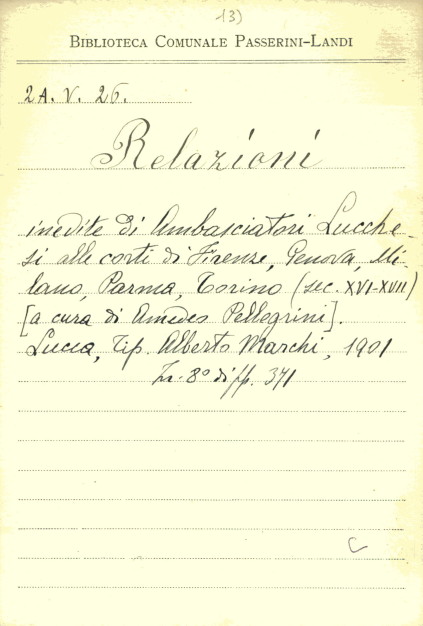 13)
BIBLIOTECA COMUNALE PASSERINI-LANDI
2A. V. 26.
Relazioni
inedite di Ambasciatori Lucche-
si alle corti di Firenze, Genova, Mi-
lano, Parma, Torino (sec. XVI-XVII)
[a cura di Amedeo Pellegrini].
Lucca, Tip. Alberto Marchi, 1901
In-8º di pp. 371
C